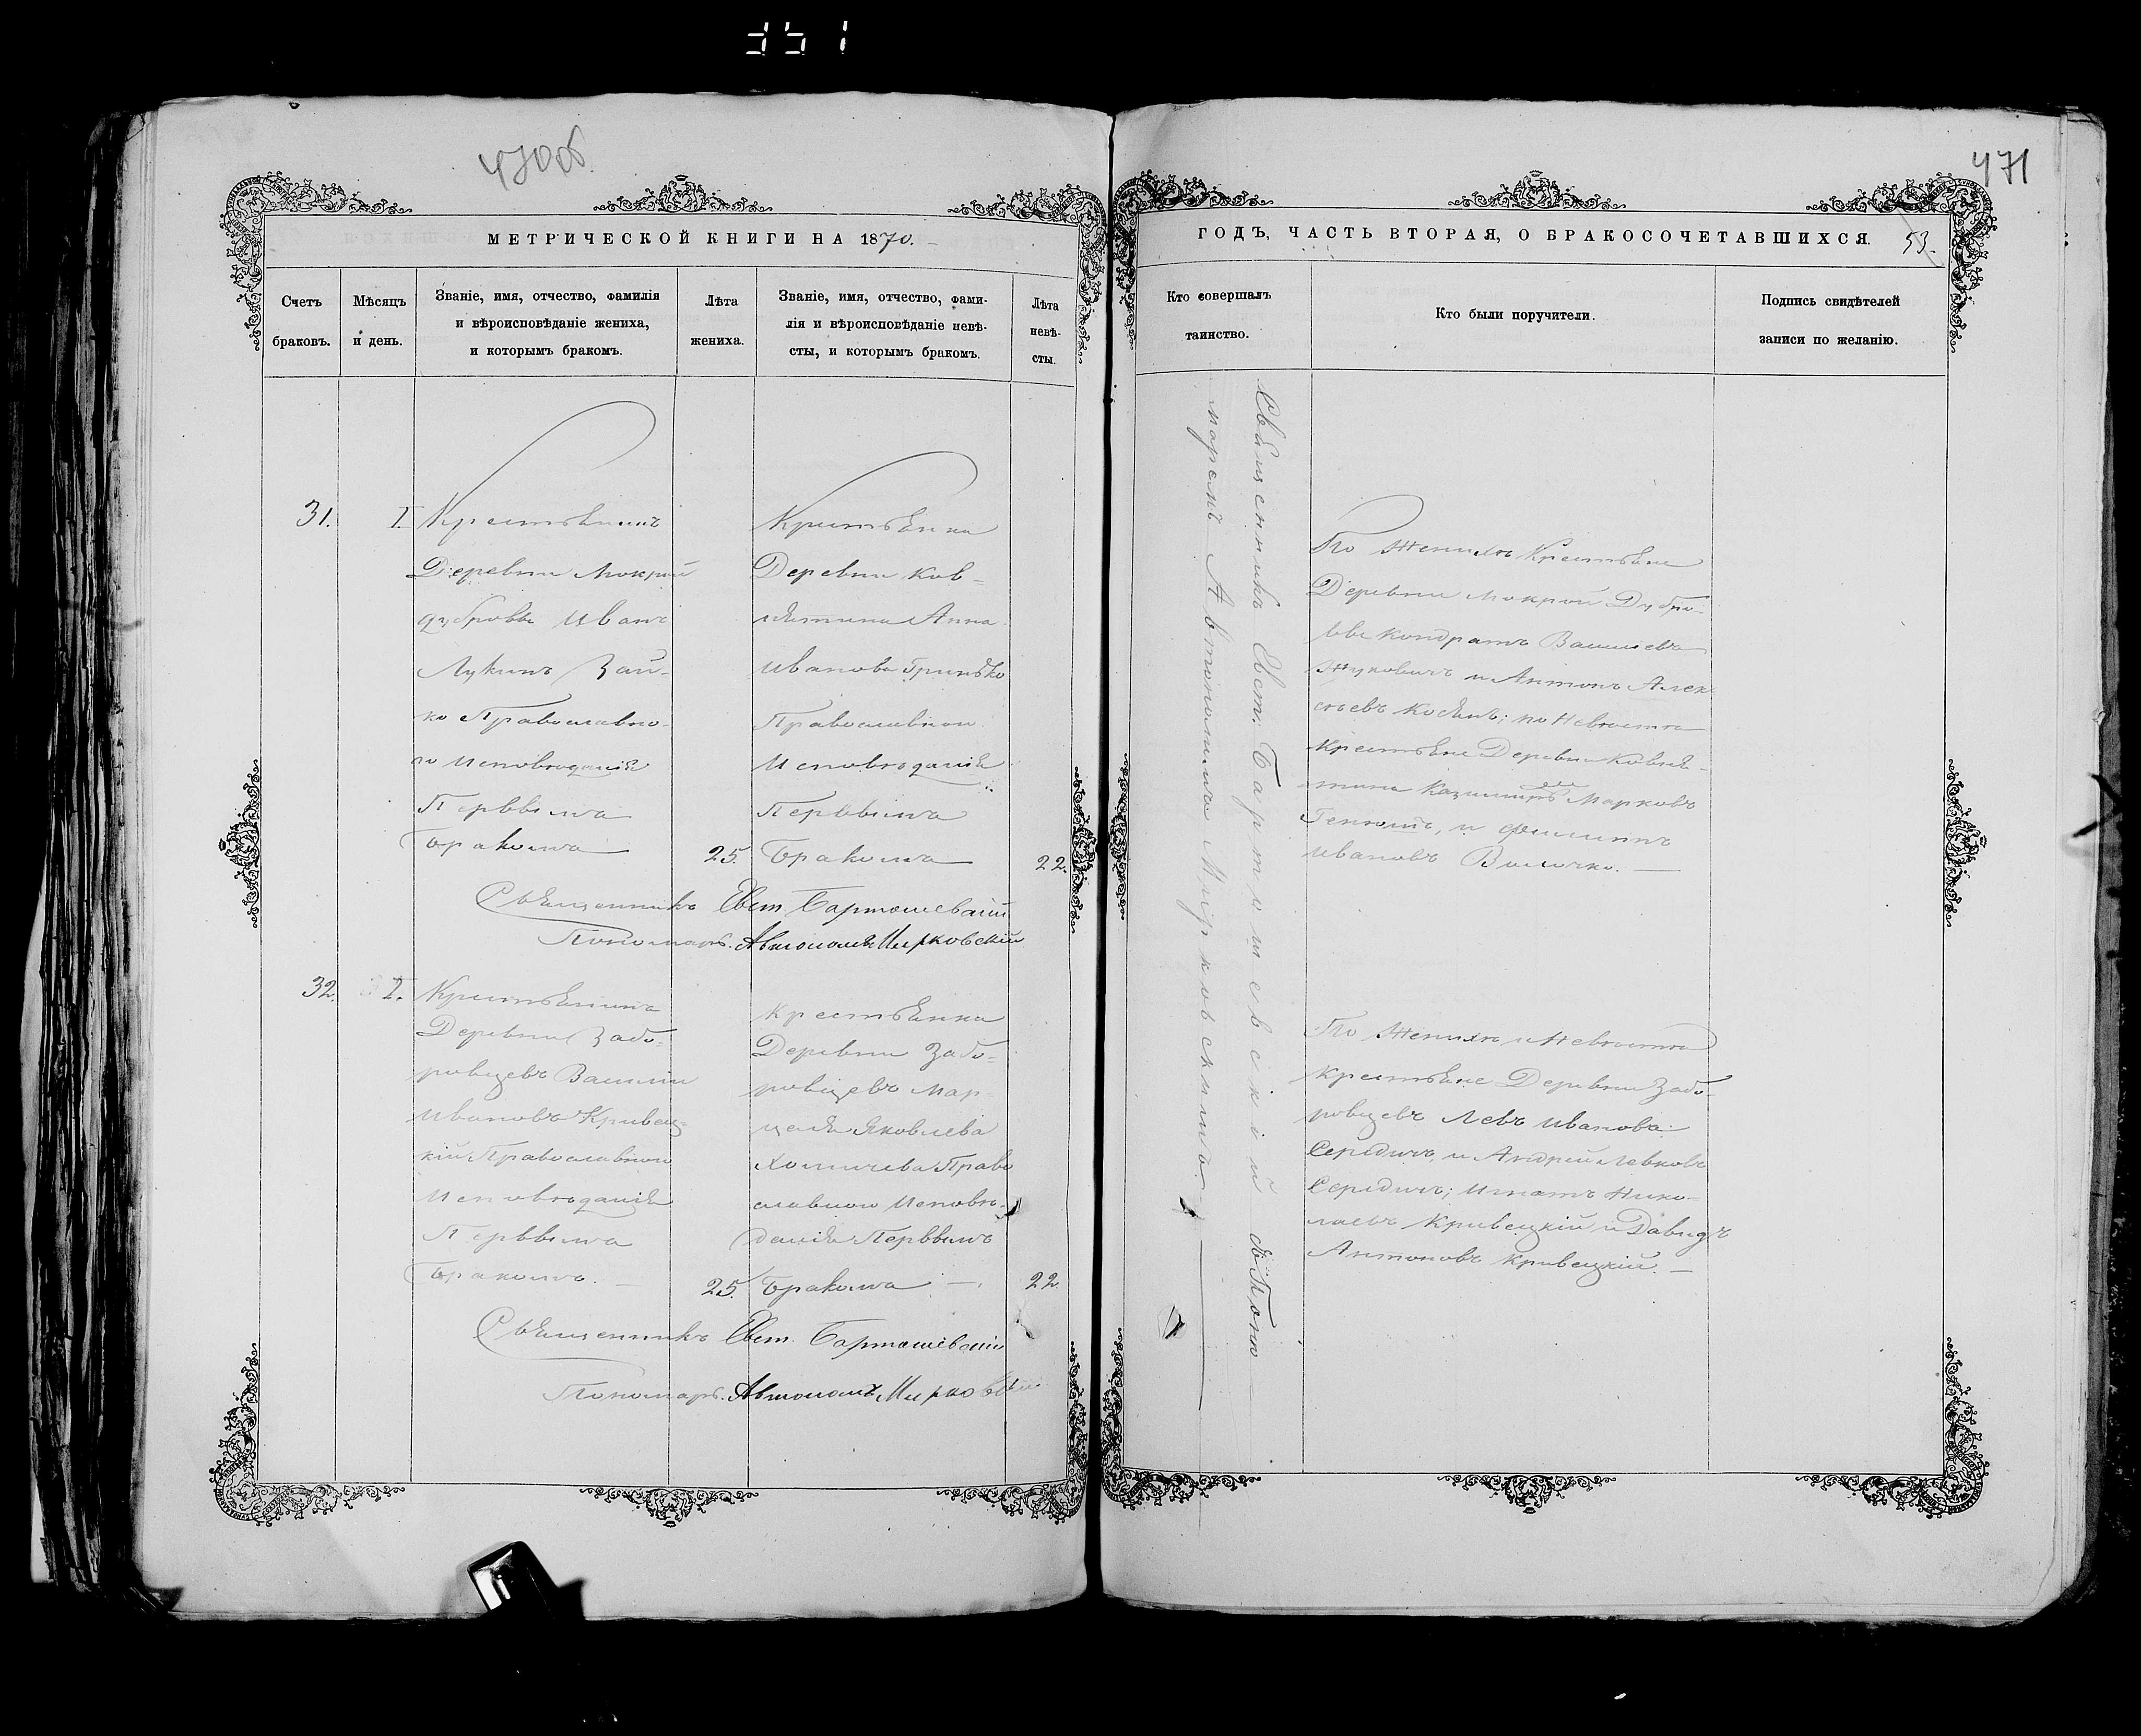 351
470об.
МЕТРИЧЕСКОЙ КНИГИ НА 1870.
Счетъ
браковъ.
Мѣсяцъ
и день.
Званіе, имя, отчество, фамилія
и вѣроисповѣданіе жениха,
и которымъ бракомъ.
Лѣта
жениха.
Званіе, имя, отчество, фами-
лія и вѣроисповѣданіе невѣ-
сты, и которымъ бракомъ.
Лѣта
невѣ-
сты.
31.
Крестьянинъ
Деревни Мокрой
дубровы Иванъ
Лукинъ Зай-
ко Православно-
го Исповѣданія
Первымъ
Бракомъ
25.
Крестьянка
Деревни Ков-
нятина Анна
Иванова Гринько
Православнаго
Исповѣданія
Первымъ
Бракомъ
22.
Священникъ Евст. Бартошевскій
Пономарь Автономъ Мирковскій
32.
2.
Крестьянинъ
Деревни Забо-
ровцевъ Василій
Ивановъ Кривец-
кій Православнаго
Исповѣданія
Первымъ
Бракомъ.
25.
Крестьянка
Деревни Забо-
ровцевъ Мар-
целя Яковлева
Хомичева Право
славнаго Исповѣ-
данія Первымъ
Бракомъ
22.
Священникъ Евст. Бартошевскій
Пономарь Автономъ Мирковскій
471
ГОДЪ, ЧАСТЬ ВТОРАЯ, О БРАКОСОЧЕТАВШИХСЯ.
53.
Кто совершалъ
таинство.
Кто были поручители.
Подпись свидѣтелей
записи по желанію.
Священникъ Евст. Бартошевскій съ Поно
маремъ Автономомъ Мирковскимъ.
По Женихѣ Крестьяне
Деревни Мокрой Дубро-
вы Кондратъ Васильевъ
Жуковичъ и Антонъ Алек
сѣевъ; по Невѣстѣ
Крестьяне Деревни Ковня-
тина Казимиръ Марковъ
и Филиппъ
Ивановъ Величко.
По Женихѣ и Невѣстѣ
Крестьяне Деревни Забо-
ровцевъ Левъ Ивановъ
Середичъ, и Андрей Левковъ
Середичъ; Игнатъ Нико-
лаевъ Кривецкій и Давидъ
Антоновъ Кривецкій.